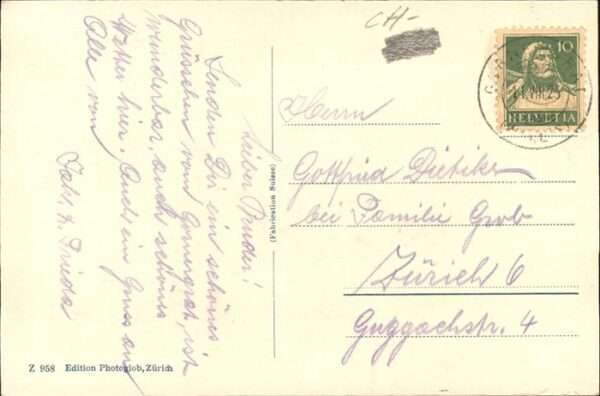 Lieber Bruder!
Senden Dir ein schönes
Grüsschen vom Gornergrat, ist
wunderbar, auch schönes
Wetter hier. Auch ein Gruss an
Alle von
Jak. u. Frieda
CH-
10
HELVETIA
Herrn
Gottfried Dietiker
bei Familie Grob
Zürich 6
Guggachstr. 4
(Fabrication Suisse)
Z 958 Edition Photoglob, Zürich